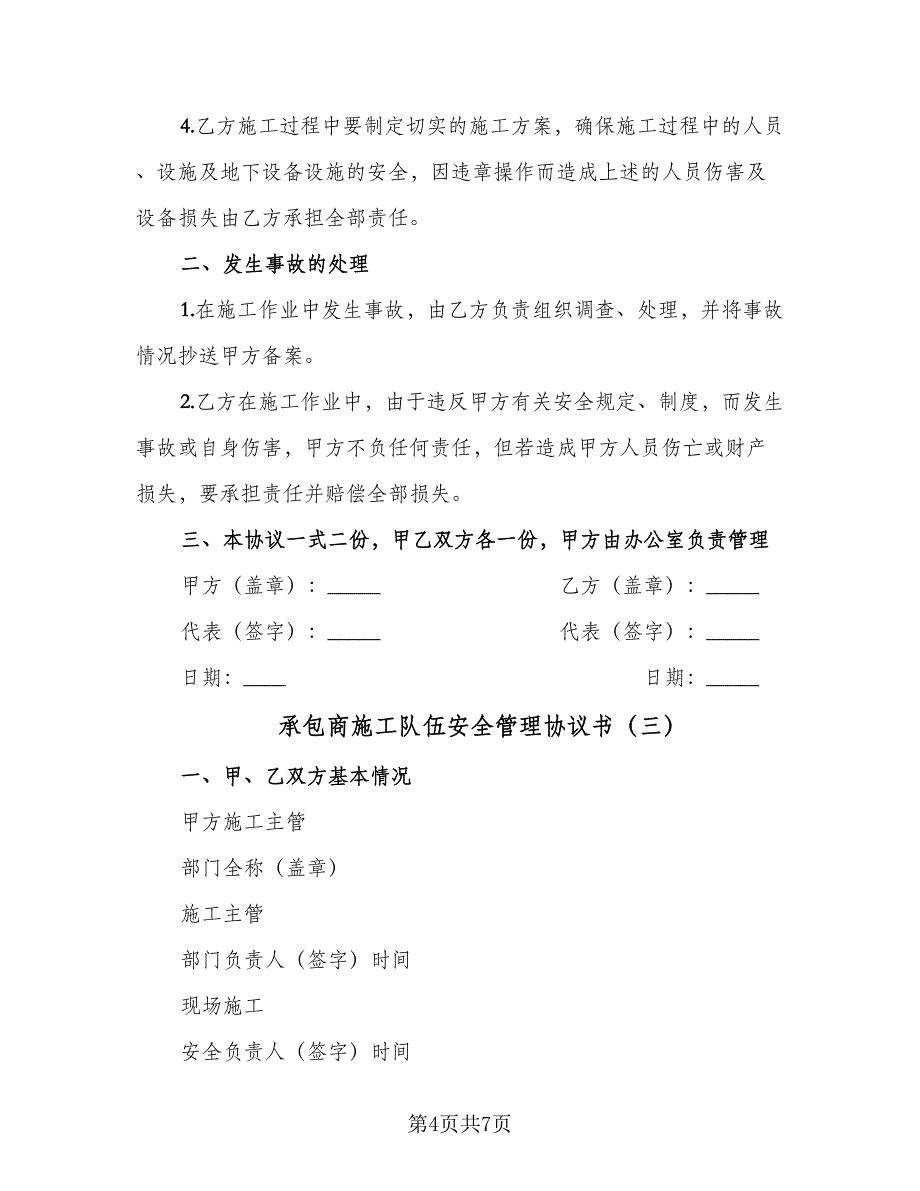 4.乙方施工过程中要制定切实的施工方案，确保施工过程中的人员
、设施及地下设备设施的安全，因违章操作而造成上述的人员伤害及
设备损失由乙方承担全部责任。
二、发生事故的处理
1.在施工作业中发生事故，由乙方负责组织调查、处理，并将事故
情况抄送甲方备案。
2.乙方在施工作业中，由于违反甲方有关安全规定、制度，而发生
事故或自身伤害，甲方不负任何责任，但若造成甲方人员伤亡或财产
损失，要承担责任并赔偿全部损失。
三、本协议一式二份，甲乙双方各一份，甲方由办公室负责管理
甲方（盖章）：_____ 乙方（盖章）：_____
代表（签字）：_____ 代表（签字）：_____
日期：____ 日期：_____
承包商施工队伍安全管理协议书（三）
一、甲、乙双方基本情况
甲方施工主管
部门全称（盖章）
施工主管
部门负责人（签字）时间
现场施工
安全负责人（签字）时间
第4页共7页